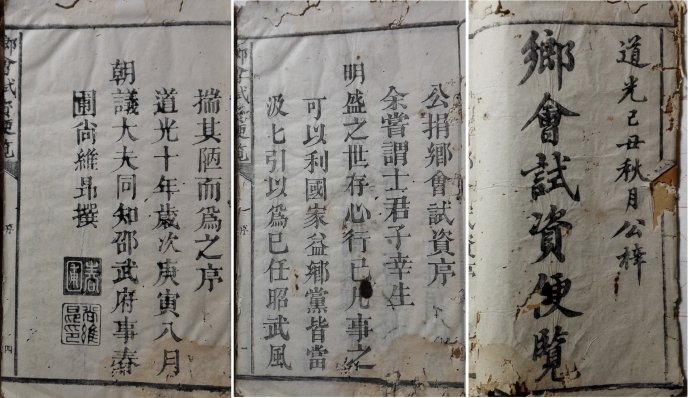 道光己丑秋月公梓
鄉會試資便覽
公捐鄉會試資序
余嘗謂士君子幸生
明盛之世存心行己凡事之
可以利國家益鄉黨皆當
汲匕引以爲己任昭武風
鄉會試資便覽 序
揣其陋而爲之序
道光十年歲次庚寅八月
朝議大夫同知邵武府事春
圃尚維昻撰
春圃
尚維昻印
鄉會試資便覽 序 四